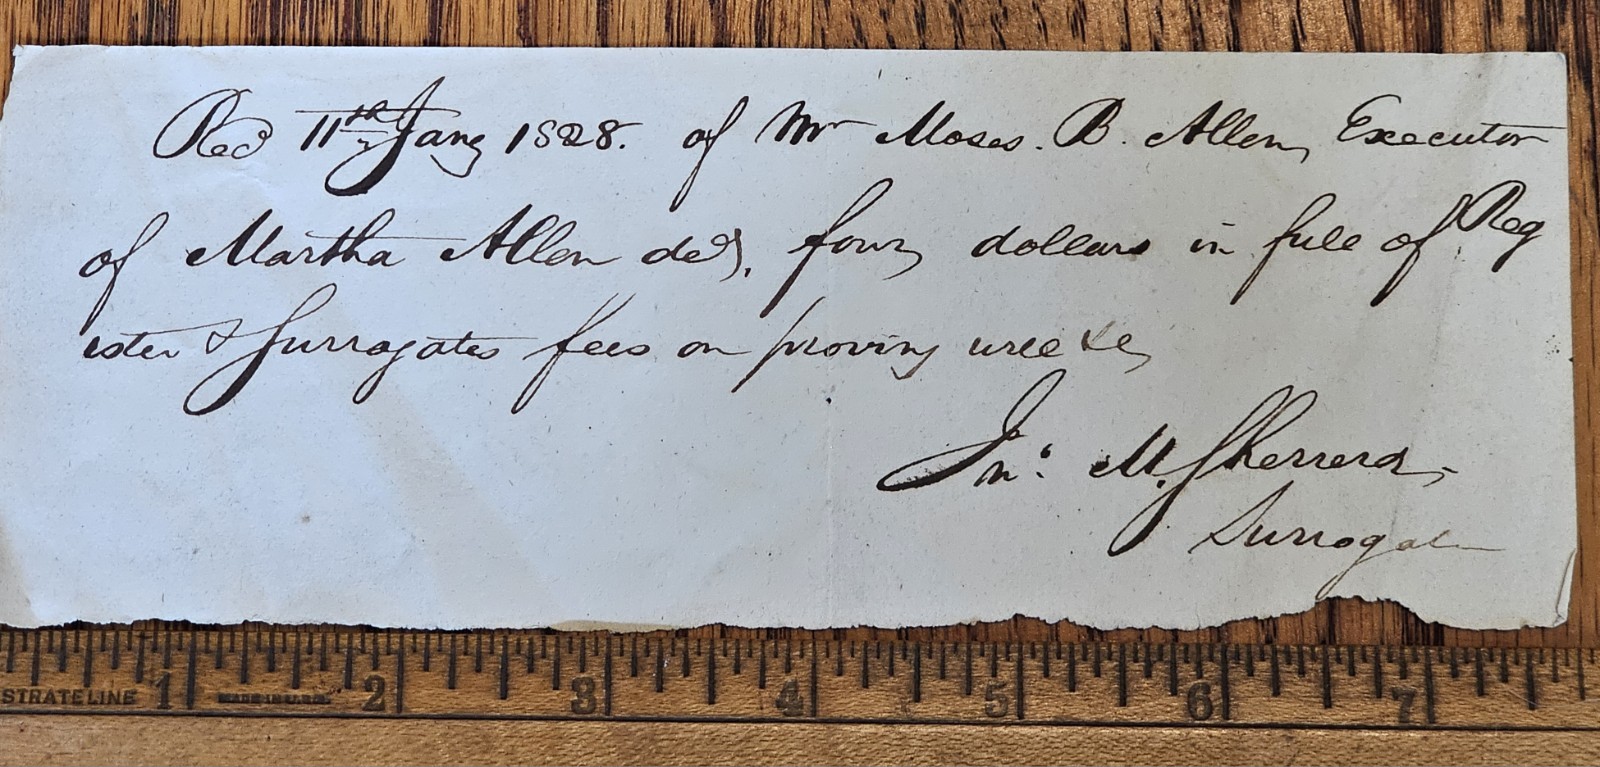 Recd 11th Jany 1828. of Mr Moses. B. Allen, Executor
of Martha Allen decd, four dollars in full of Reg
ister & Surrogates fees on proving will &c,
Jno: M. Sherrerd,
Surrogate
STRATELINE 1 MADE IN U.S.A. 2 3 4 5 6 7